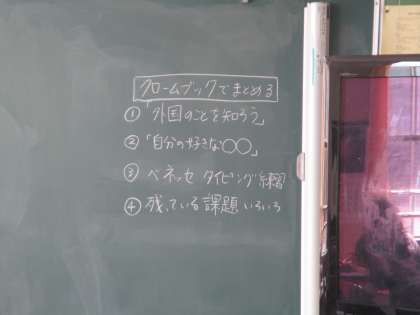 クロームブックでまとめる
①「外国のことを知ろう」
②「自分の好きな○○」
③ ベネッセ タイピング練習
④ 残っている課題いろいろ